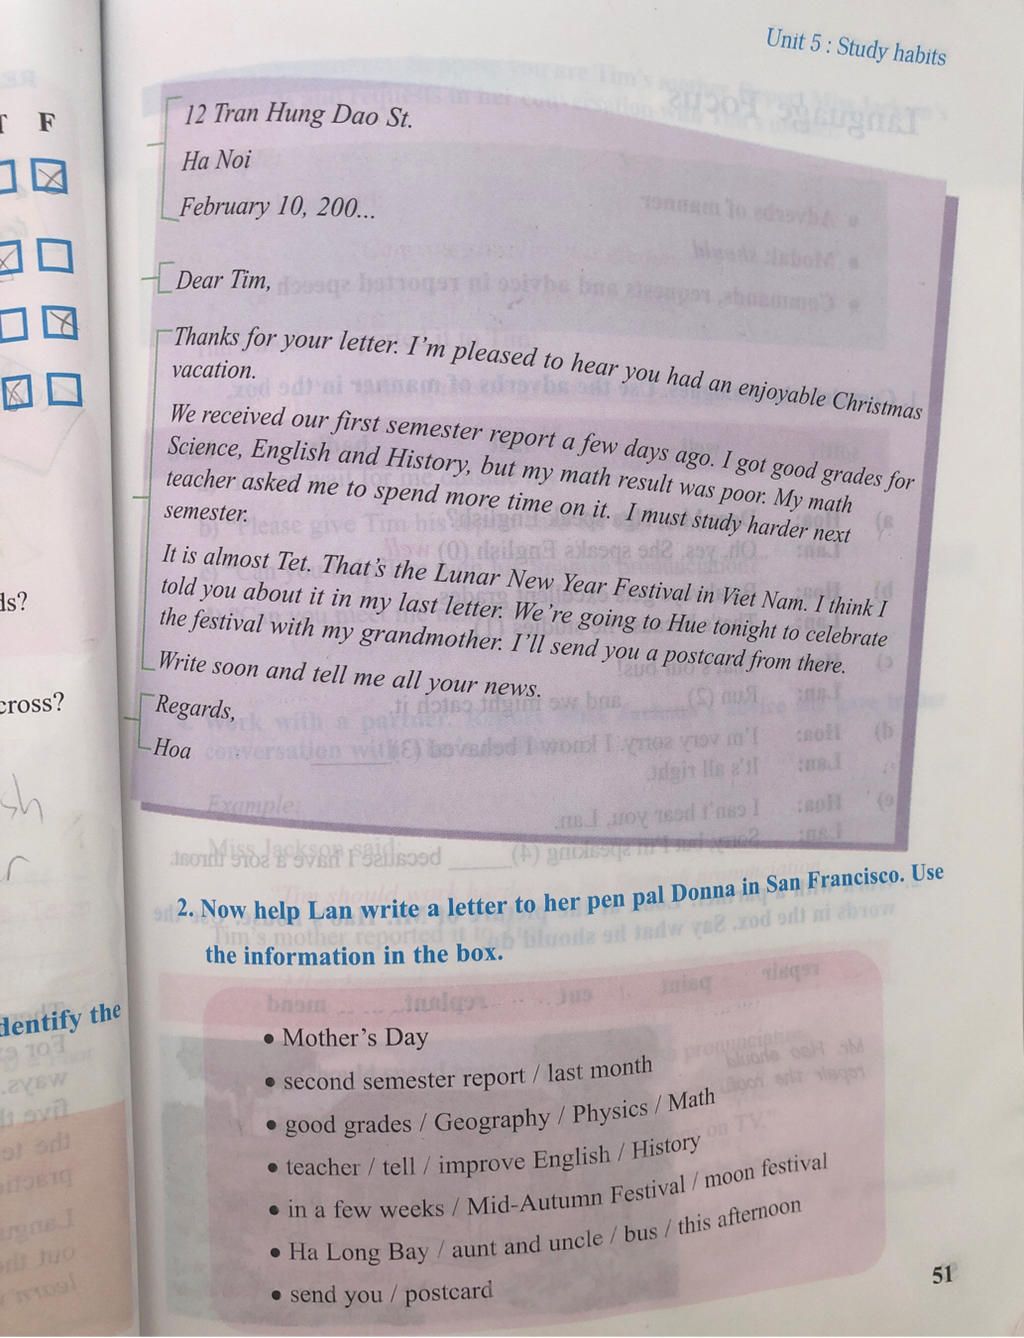 Unit 5 : Study habits
F
12 Tran Hung Dao St.
Ha Noi
February 10, 200...
Dear Tim,
Thanks for your letter. I'm pleased to hear you had an enjoyable Christmas
vacation.
We received our first semester report a few days ago. I got good grades for
Science, English and History, but my math result was poor. My math
teacher asked me to spend more time on it. I must study harder next
semester.
It is almost Tet. That's the Lunar New Year Festival in Viet Nam. I think I
told you about it in my last letter. We're going to Hue tonight to celebrate
the festival with my grandmother. I'll send you a postcard from there.
Write soon and tell me all your news.
Regards,
Hoa
2. Now help Lan write a letter to her pen pal Donna in San Francisco. Use
the information in the box.
• Mother's Day
• second semester report / last month
• good grades / Geography / Physics / Math
• teacher / tell / improve English / History
• in a few weeks / Mid-Autumn Festival / moon festival
• Ha Long Bay / aunt and uncle / bus / this afternoon
• send you / postcard
51